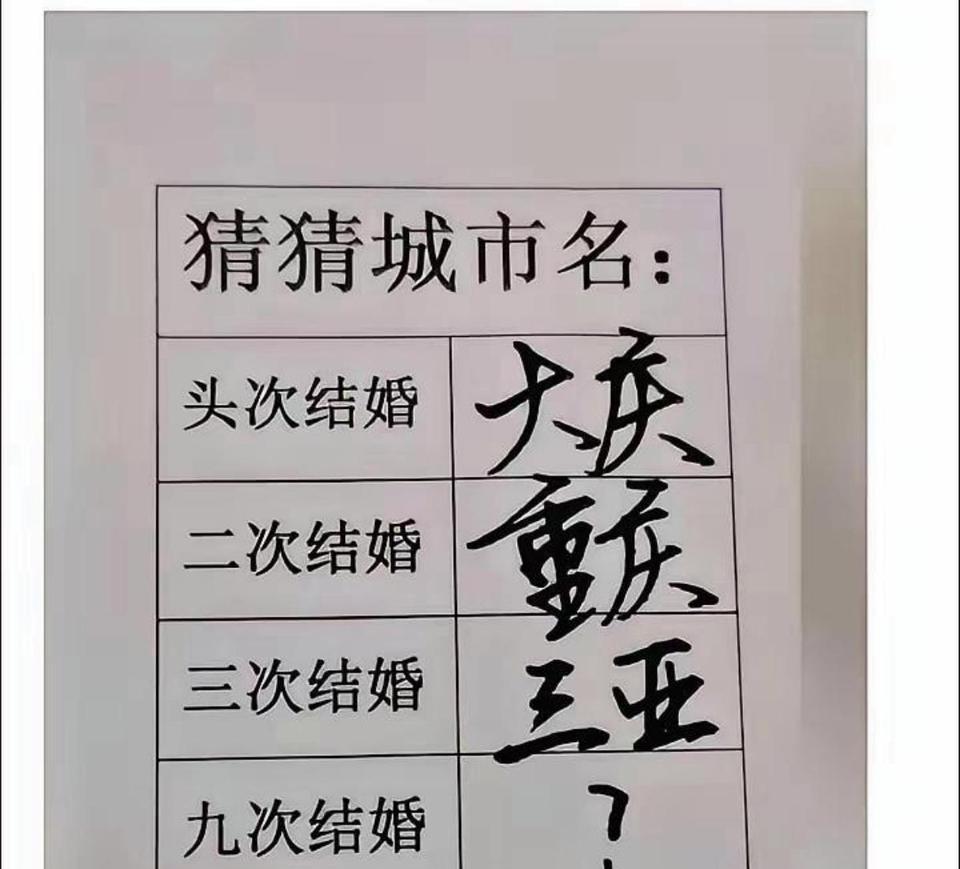 猜猜城市名：
头次结婚 大庆
二次结婚 重庆
三次结婚 三亚
九次结婚 ?